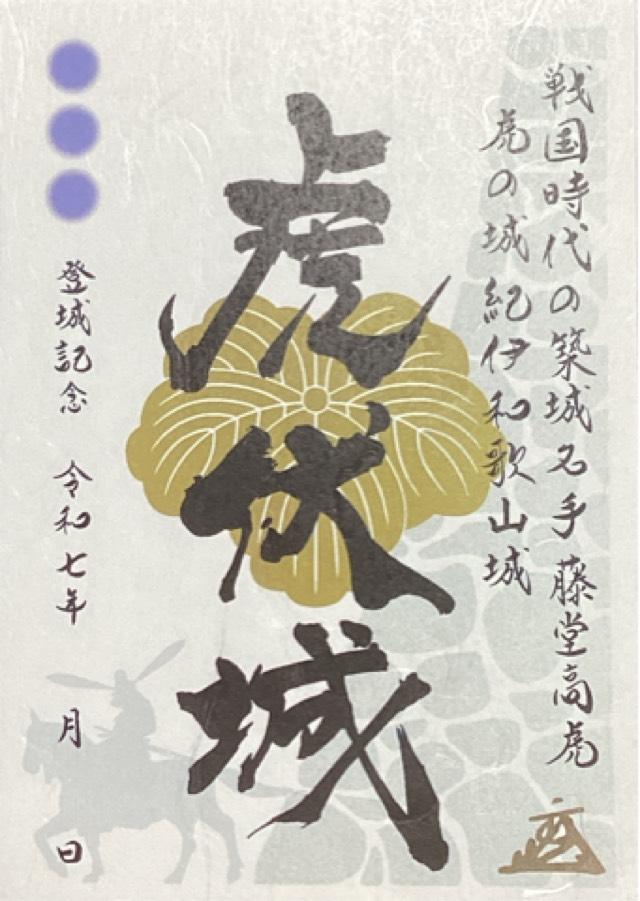 戦国時代の築城名手 藤堂高虎
虎の城 紀伊和歌山城
虎伏城
登城記念 令和七年 月 日